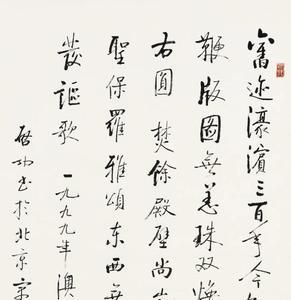 舊迹濠濱三百年今
鞭版圖無恙珠双焕
右圓 焚餘殿壁尚
聖保羅雅頌东西無
發謳歌 一九九九年澳
啟功书於北京